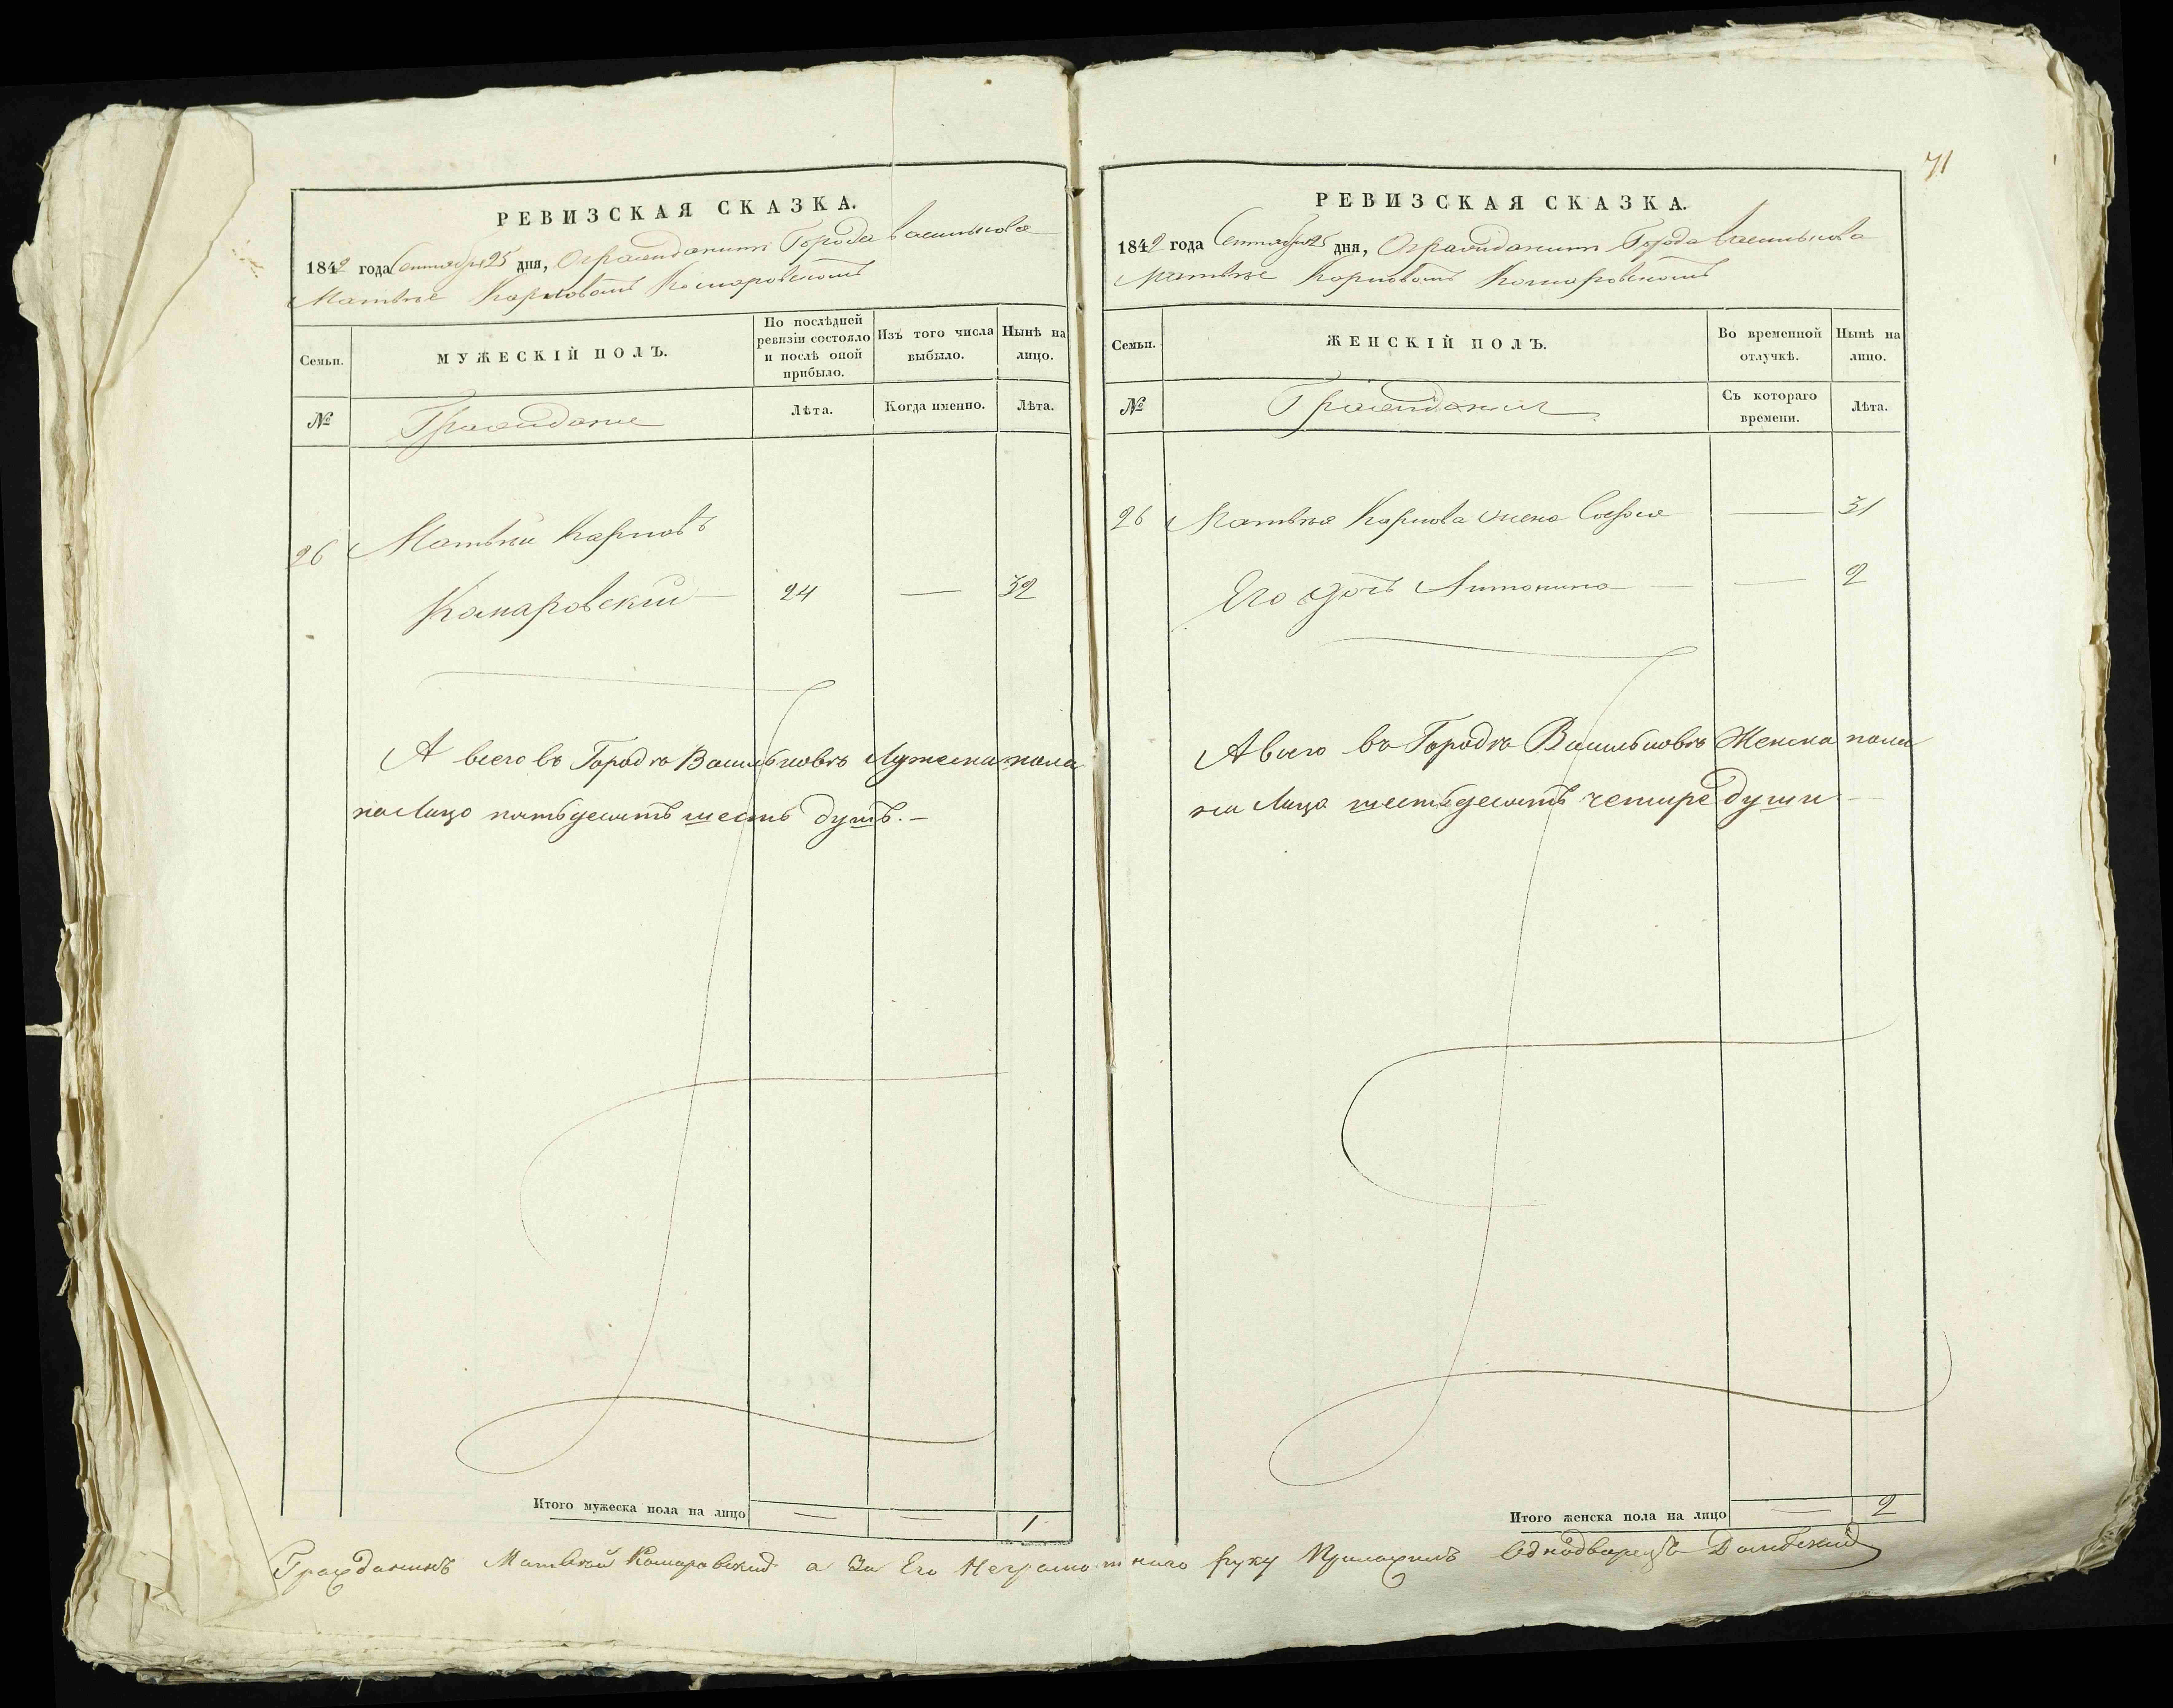 РЕВИЗСКАЯ СКАЗКА.
1842 года Сентября 25 дня, О гражданинѣ Города Василькова
Матвѣе Карповомъ Комаровскомъ
Семьи.
МУЖЕСКІЙ ПОЛЪ.
По послѣдней ревизіи состояло и послѣ оной прибыло.
Изъ того числа выбыло.
Нынѣ на лицо.
№
Граждане
Лѣта.
Когда именно.
Лѣта.
26 Матвѣй Карповъ
Комаровскій — 24 — 32
А всего въ Городѣ Васильковѣ Мужеска пола
на Лицо пятьдесятъ шесть душъ. —
Итого мужеска пола на лицо — — 1
71
РЕВИЗСКАЯ СКАЗКА.
1842 года Сентября 25 дня, О гражданинѣ Города Василькова
Матвѣе Карповомъ Комаровскомъ
Семьи.
ЖЕНСКІЙ ПОЛЪ.
Во временной отлучкѣ.
Нынѣ на лицо.
№
Граждане
Съ котораго времени.
Лѣта.
26 Матвѣя Карпова жена Софья — 31
Его дочь Антонина — — 2
А всего въ Городѣ Васильковѣ Женска пола
на Лицо шестьдесятъ четыре души —
Итого женска пола на лицо — 2
Гражданинъ Матвѣй Комаровскій а За Его Неграмотнаго руку Приложилъ Однодворецъ